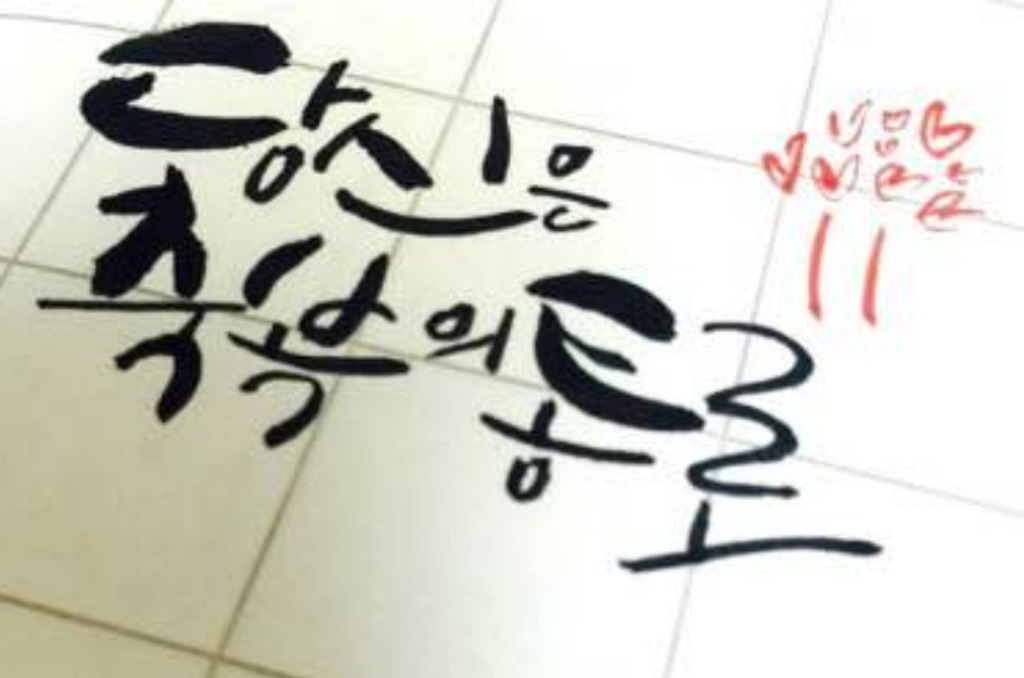 당신은
축복의통로